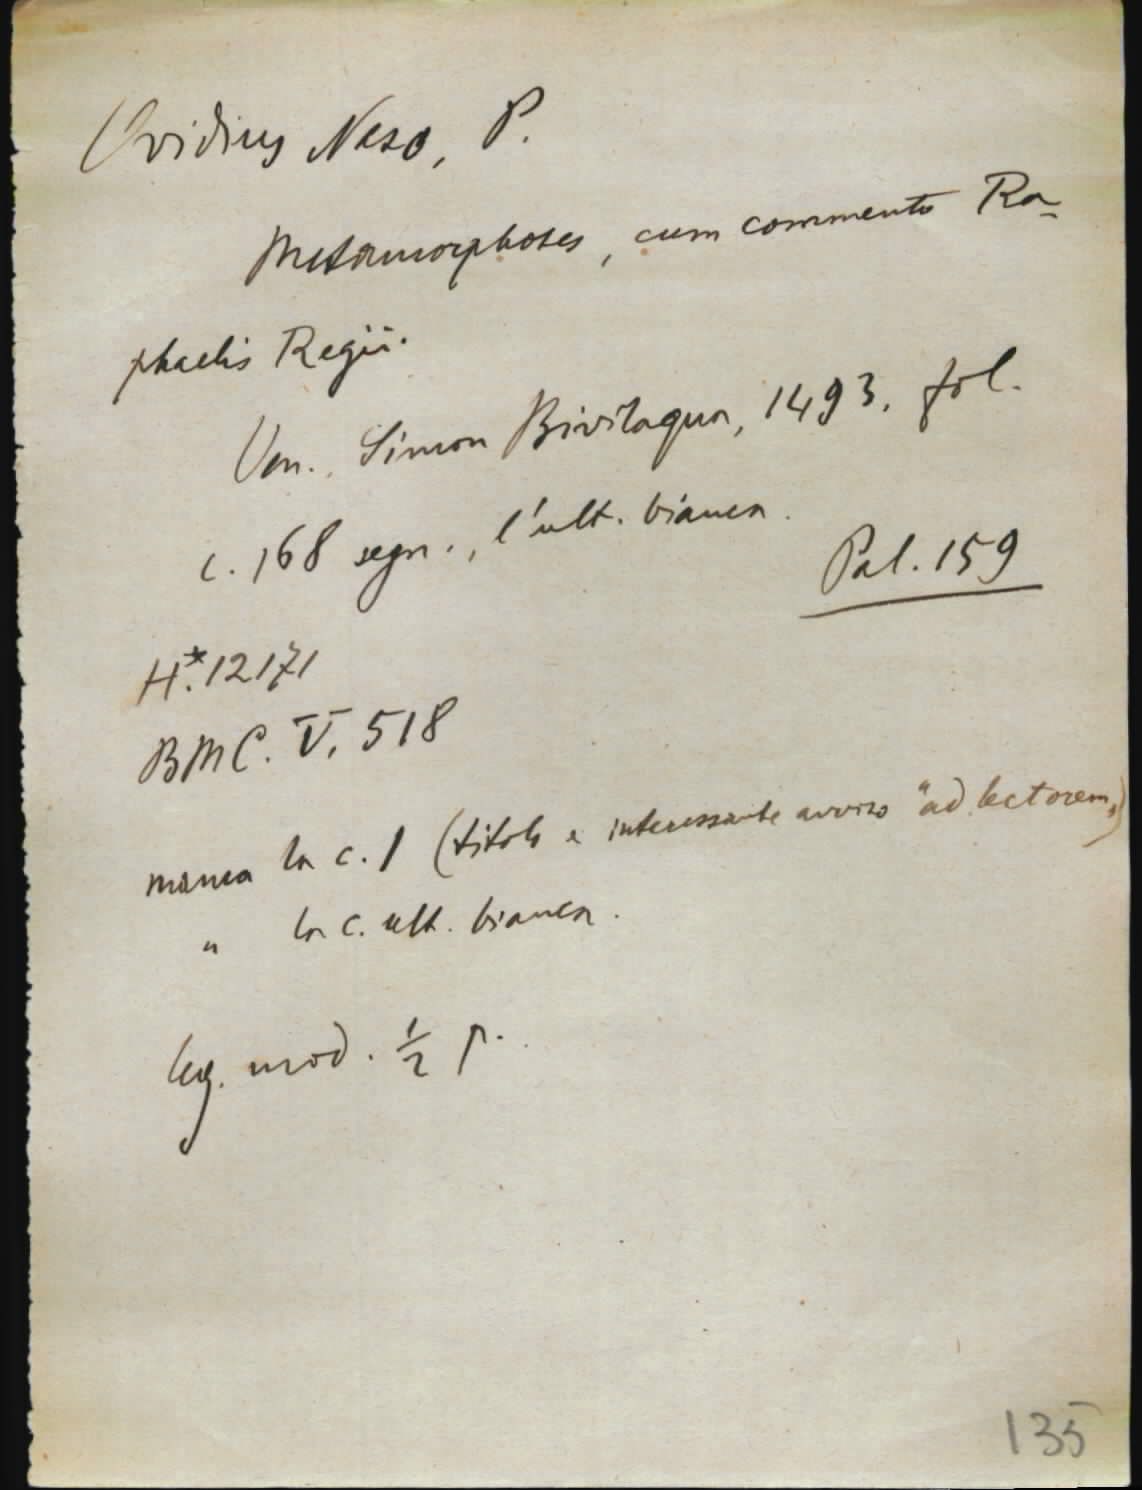 Ovidius Naso, P.
Metamorphoses, cum commento Ra-
phaelis Regii.
Ven., Simon Bivilaqua, 1493. fol.
c. 168 segn., l'ult. bianca.
Pal. 159
H*. 12171
BMC. V, 518
manca la c. 1 (titolo e interessante avviso "ad lectorem")
" la c. ult. bianca.
leg. mod. ½ p.
135